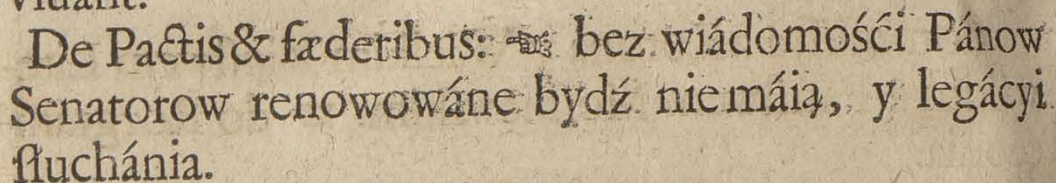 De Pactis & fæderibus: ☜ bez wiádomośći Pánow
Senatorow renowowáne bydź niemáią, y legácyi
słuchánia.